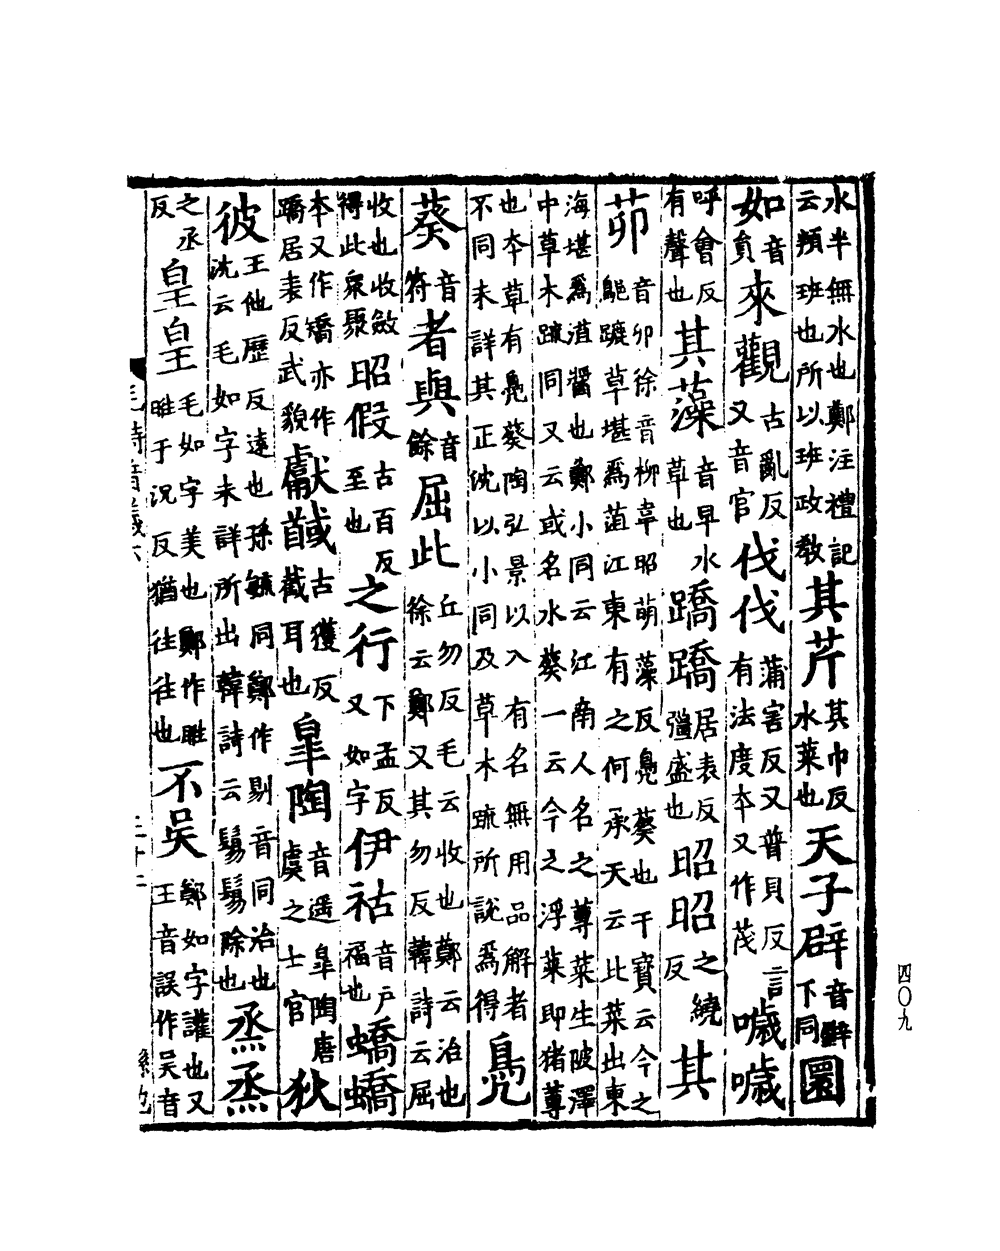 水半無水也鄭注禮記云頖班也所以班政教其芹其巾反水菜也天子辟音璧下同圜
如音貟來觀古亂反又音官伐伐蒲害反又普貝反言有法度本又作茷噦噦
呼會反有聲也其藻音早水草也蹻蹻居表反彊盛也昭昭之繞反其
茆音卯徐音柳韋昭萌藻反鳧葵也干寳云今之蹗草堪爲菹江東有之何承天云此菜出東
海堪爲菹醬也鄭小同云江南人名之蓴菜生陂澤中草木疏同又云或名水葵一云今之浮菜即猪蓴
也本草有鳧葵陶弘景以入有名無用品解者不同未詳其正沈以小同及草木疏所説爲得鳧
葵音符者與音餘屈此丘勿反毛云收也鄭云治也徐云鄭又其勿反韓詩云屈
收也收斂得此衆聚昭假古百反至也之行下孟反又如字伊祜音户福也蟜蟜
本又作矯亦作蹻居表反武貌獻馘古獲反截耳也皐陶音遥皐陶唐虞之士官狄
彼王他歷反遠也孫毓同鄭作剔音同治也沈云毛如字未詳所出韓詩云鬄鬄除也烝烝
之丞反皇皇毛如字美也鄭作暀暀于況反猶往往也不吳鄭如字讙也又王音誤作吳音
毛詩音義六
三十二
四〇九